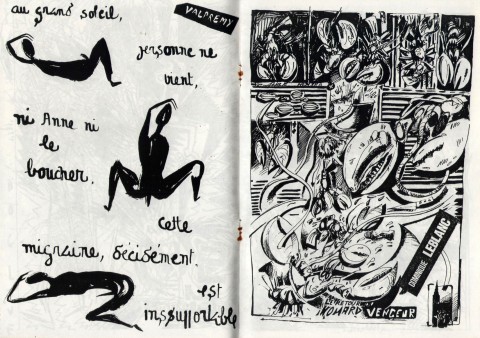 au grand soleil,
VALPREMY
personne ne
vient,
ni Anne ni
le
boucher.
cette
migraine, décisément.
est
insupportable
DOMINIQUE LEBLANC
LE RETOUR
HOMARD
VENGEUR